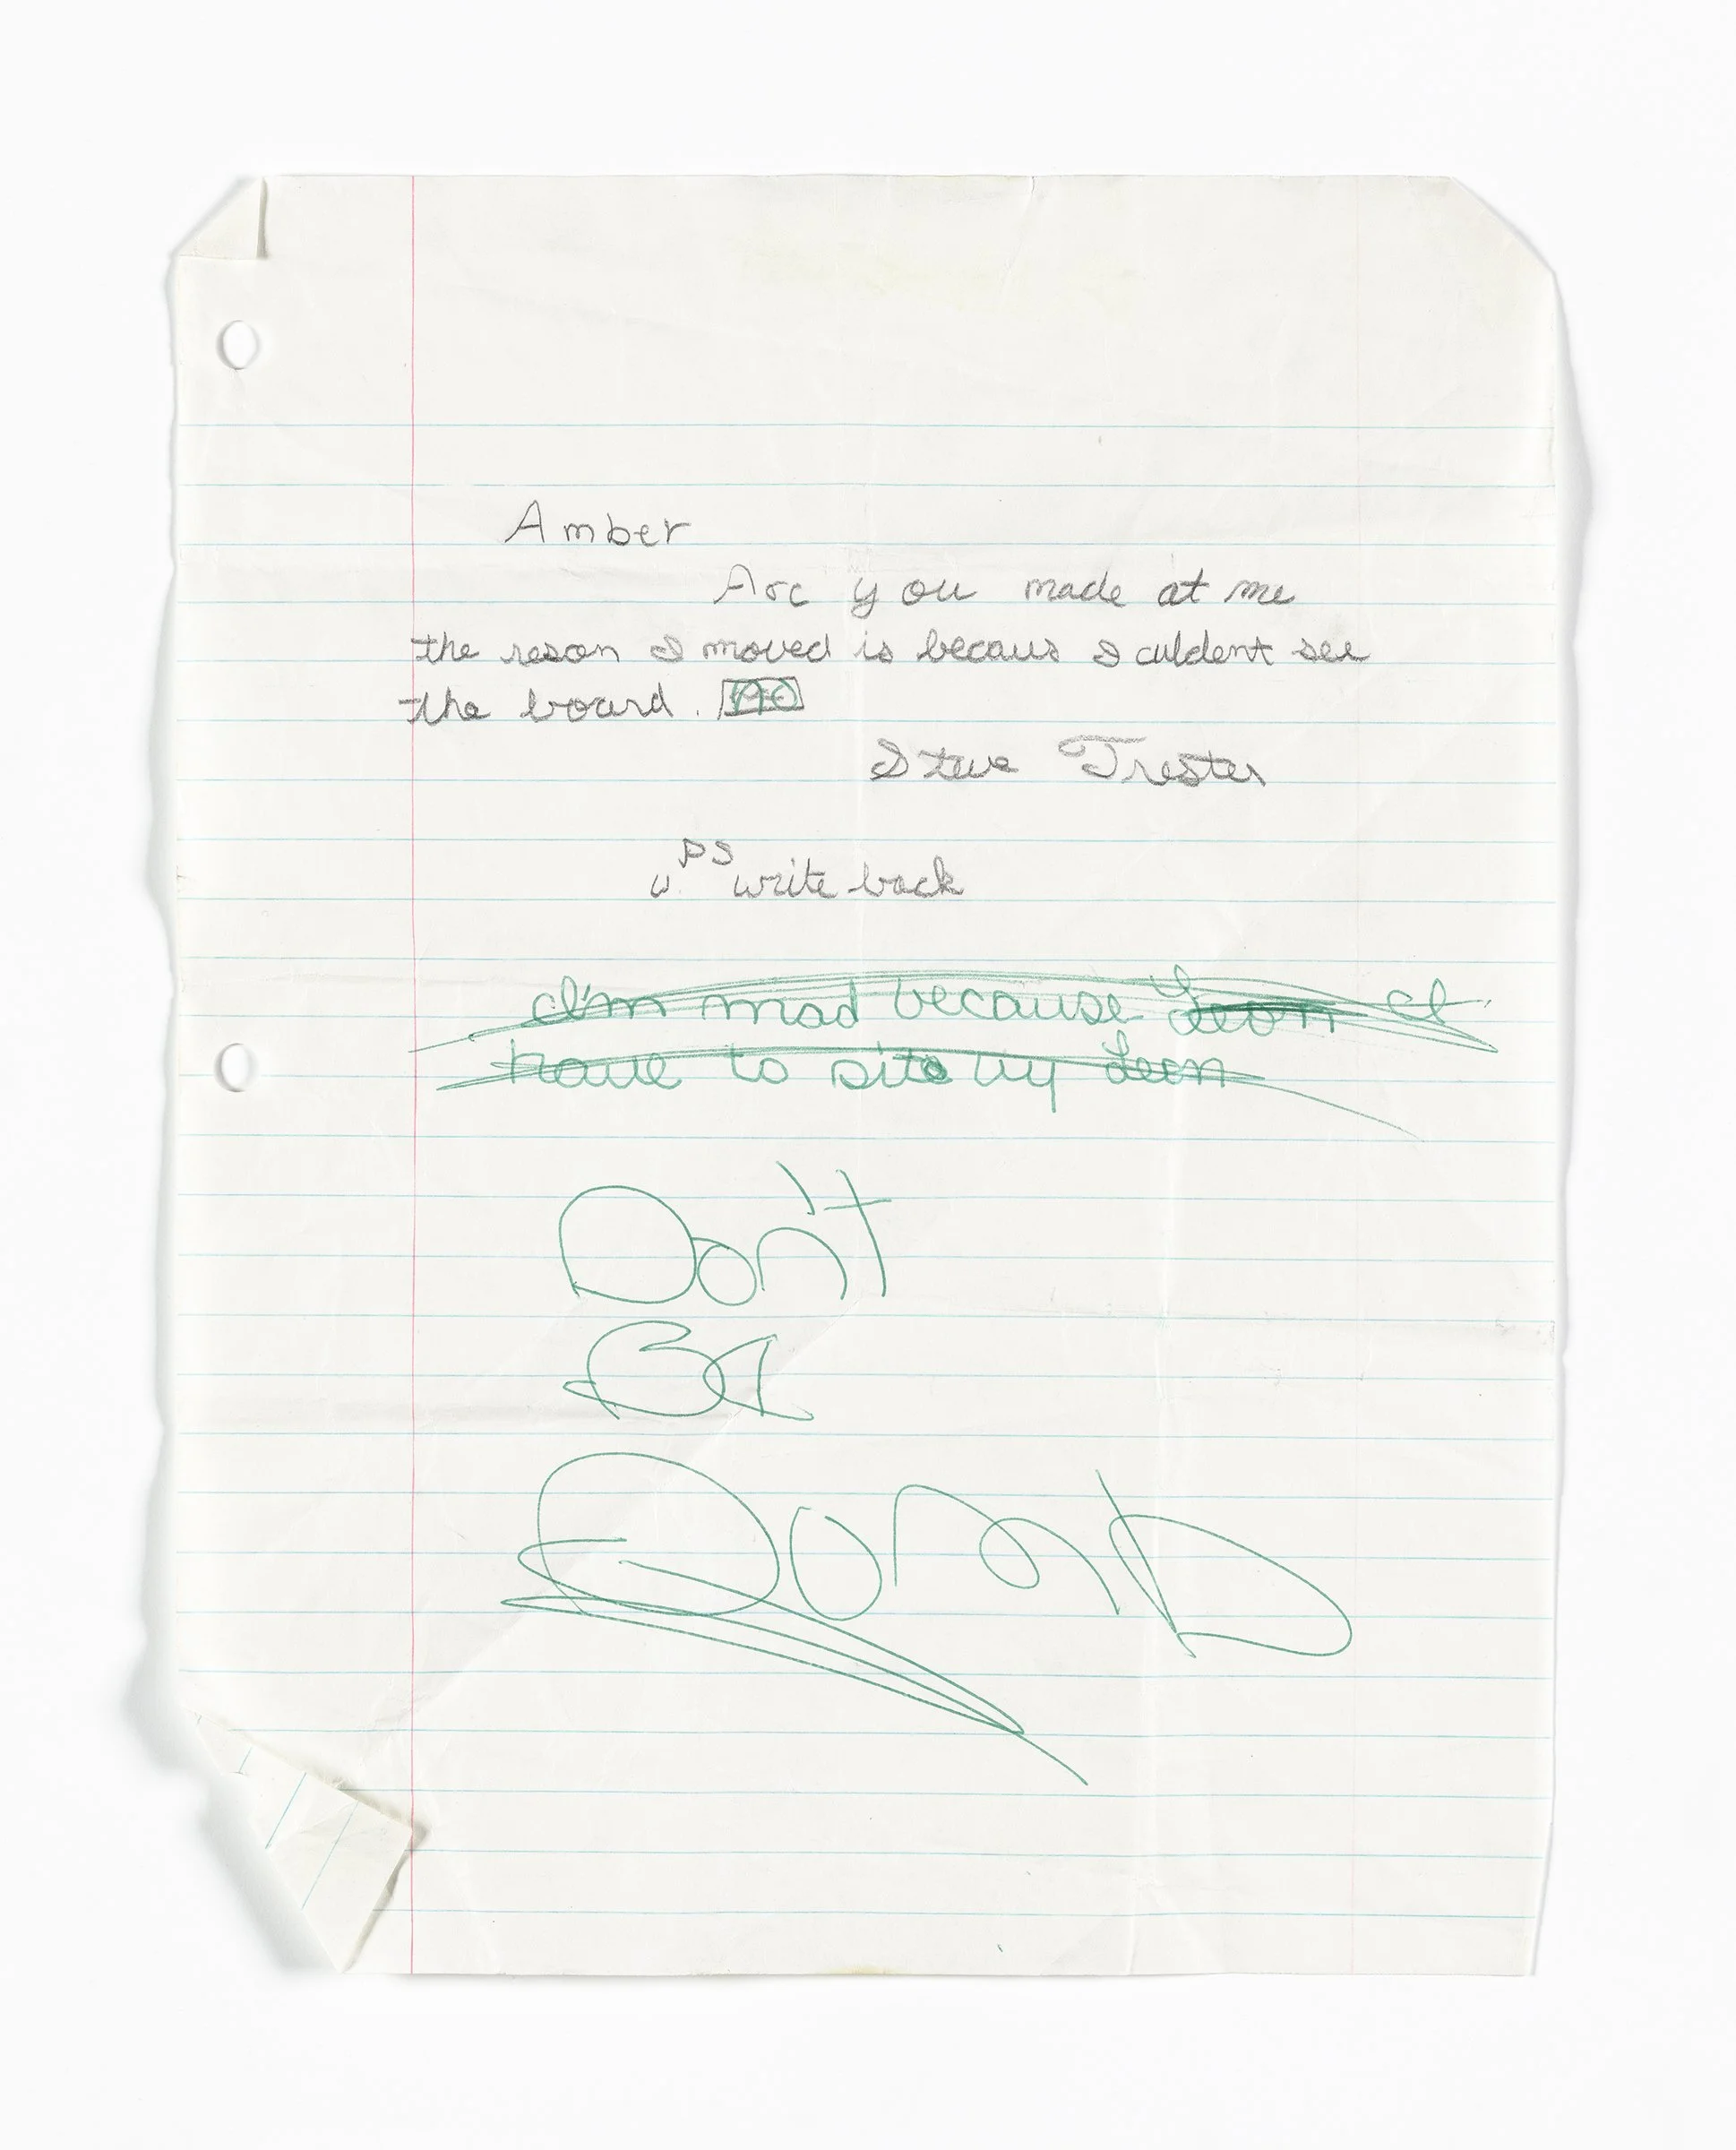 Amber
Are you made at me
the reson I moved is becaus I culdent see
the board.
Steve Trester
PS
w. write back
I'm mad because Leon I
have to sit by Leon
Don't
Be
DUMB